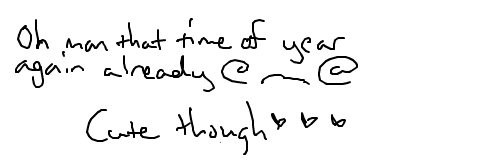 Oh man that time of year
again already @__@
Cute though ♥ ♥ ♥